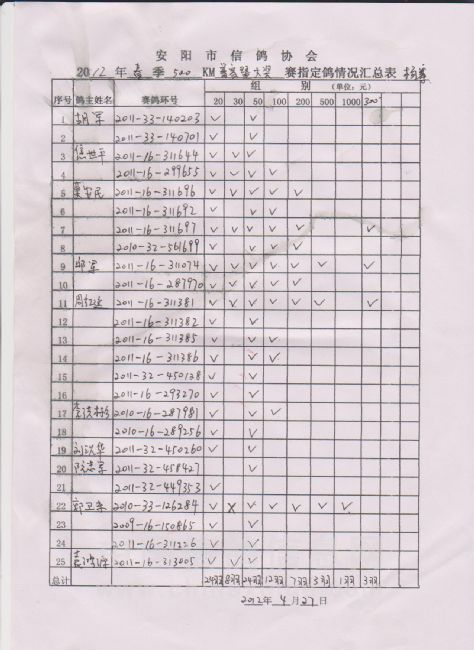 安阳市信鸽协会
2012年春季500KM 大奖赛指定鸽情况汇总表
组别 (单位:元)
序号 鸽主姓名 赛鸽环号 20 30 50 100 200 500 1000 300
1 胡军 2011-33-140203 √ √
2 2011-33-140701 √ √
3 信世平 2011-16-311644 √ √ √
4 2011-16-299655 √ √ √ √
5 安民 2011-16-311696 √ √ √ √ √
6 2011-16-311692 √ √ √
7 2011-16-311697 √ √ √ √ √ √
8 2010-32-561699 √ √ √ √
9 军 2011-16-311074 √ √ √ √ √ √ √
10 2011-16-287970 √ √ √ √ √
11 周红 2011-16-311381 √ √ √ √ √ √ √
12 2011-16-311382 √ √
13 2011-16-311385 √ √ √
14 2011-16-311386 √ √ √
15 2011-32-450128 √ √
16 2011-16-293270 √ √
17 2010-16-287981 √ √ √
18 2010-16-289256 √ √
19 刘汉华 2011-32-450260 √ √
20 志军 2011-32-458427 √ √
21 2011-32-449353 √
22 郭卫 2010-33-126284 √ X √ √ √ √ √
23 2009-16-150865 √ √
24 2011-16-311226 √ √
25 2011-16-313005 √ √ √
总计 24羽 8羽 24羽 12羽 7羽 3羽 1羽 3羽
2012年4月27日